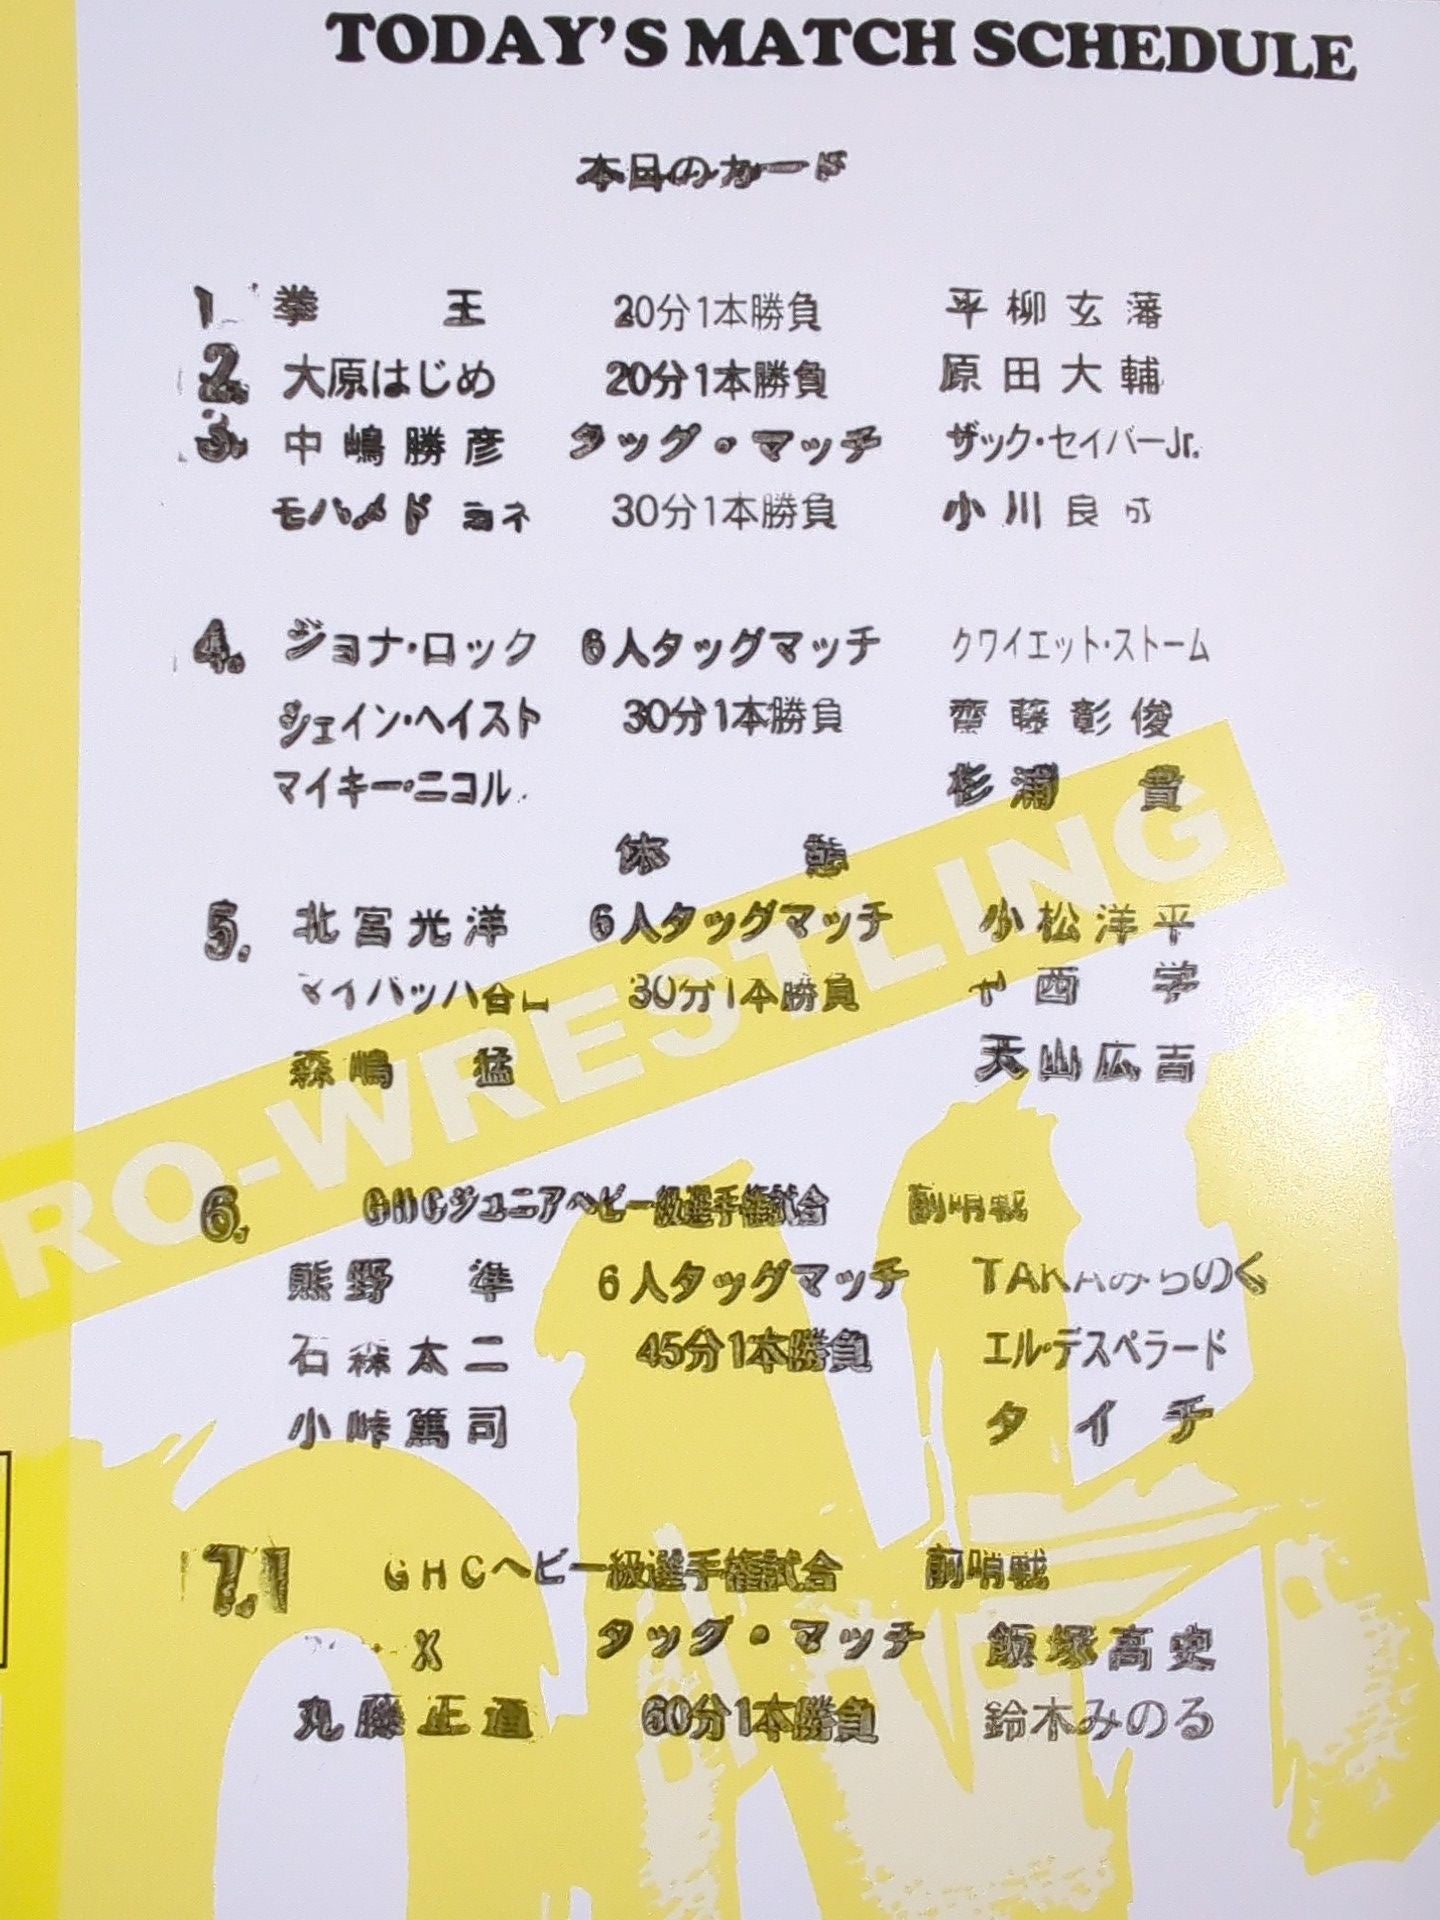 TODAY'S MATCH SCHEDULE
本日のカード
1. 拳王 20分1本勝負 平柳玄藩
2. 大原はじめ 20分1本勝負 原田大輔
3. 中嶋勝彦 タッグ・マッチ ザック・セイバーJr.
モハメド ヨネ 30分1本勝負 小川良成
4. ジョナ・ロック 6人タッグマッチ クワイエット・ストーム
シェイン・ヘイスト 30分1本勝負 齋藤彰俊
マイキー・ニコル 杉浦貴
休憩
5. 北宮光洋 6人タッグマッチ 小松洋平
マイバッハ谷口 30分1本勝負 中西学
森嶋猛 天山広吉
6. GHCジュニアヘビー級選手権試合 前哨戦
熊野準 6人タッグマッチ TAKAみちのく
石森太二 45分1本勝負 エル・デスペラード
小峠篤司 タイチ
7. GHCヘビー級選手権試合 前哨戦
X タッグ・マッチ 飯塚高史
丸藤正道 60分1本勝負 鈴木みのる
RO-WRESTLING